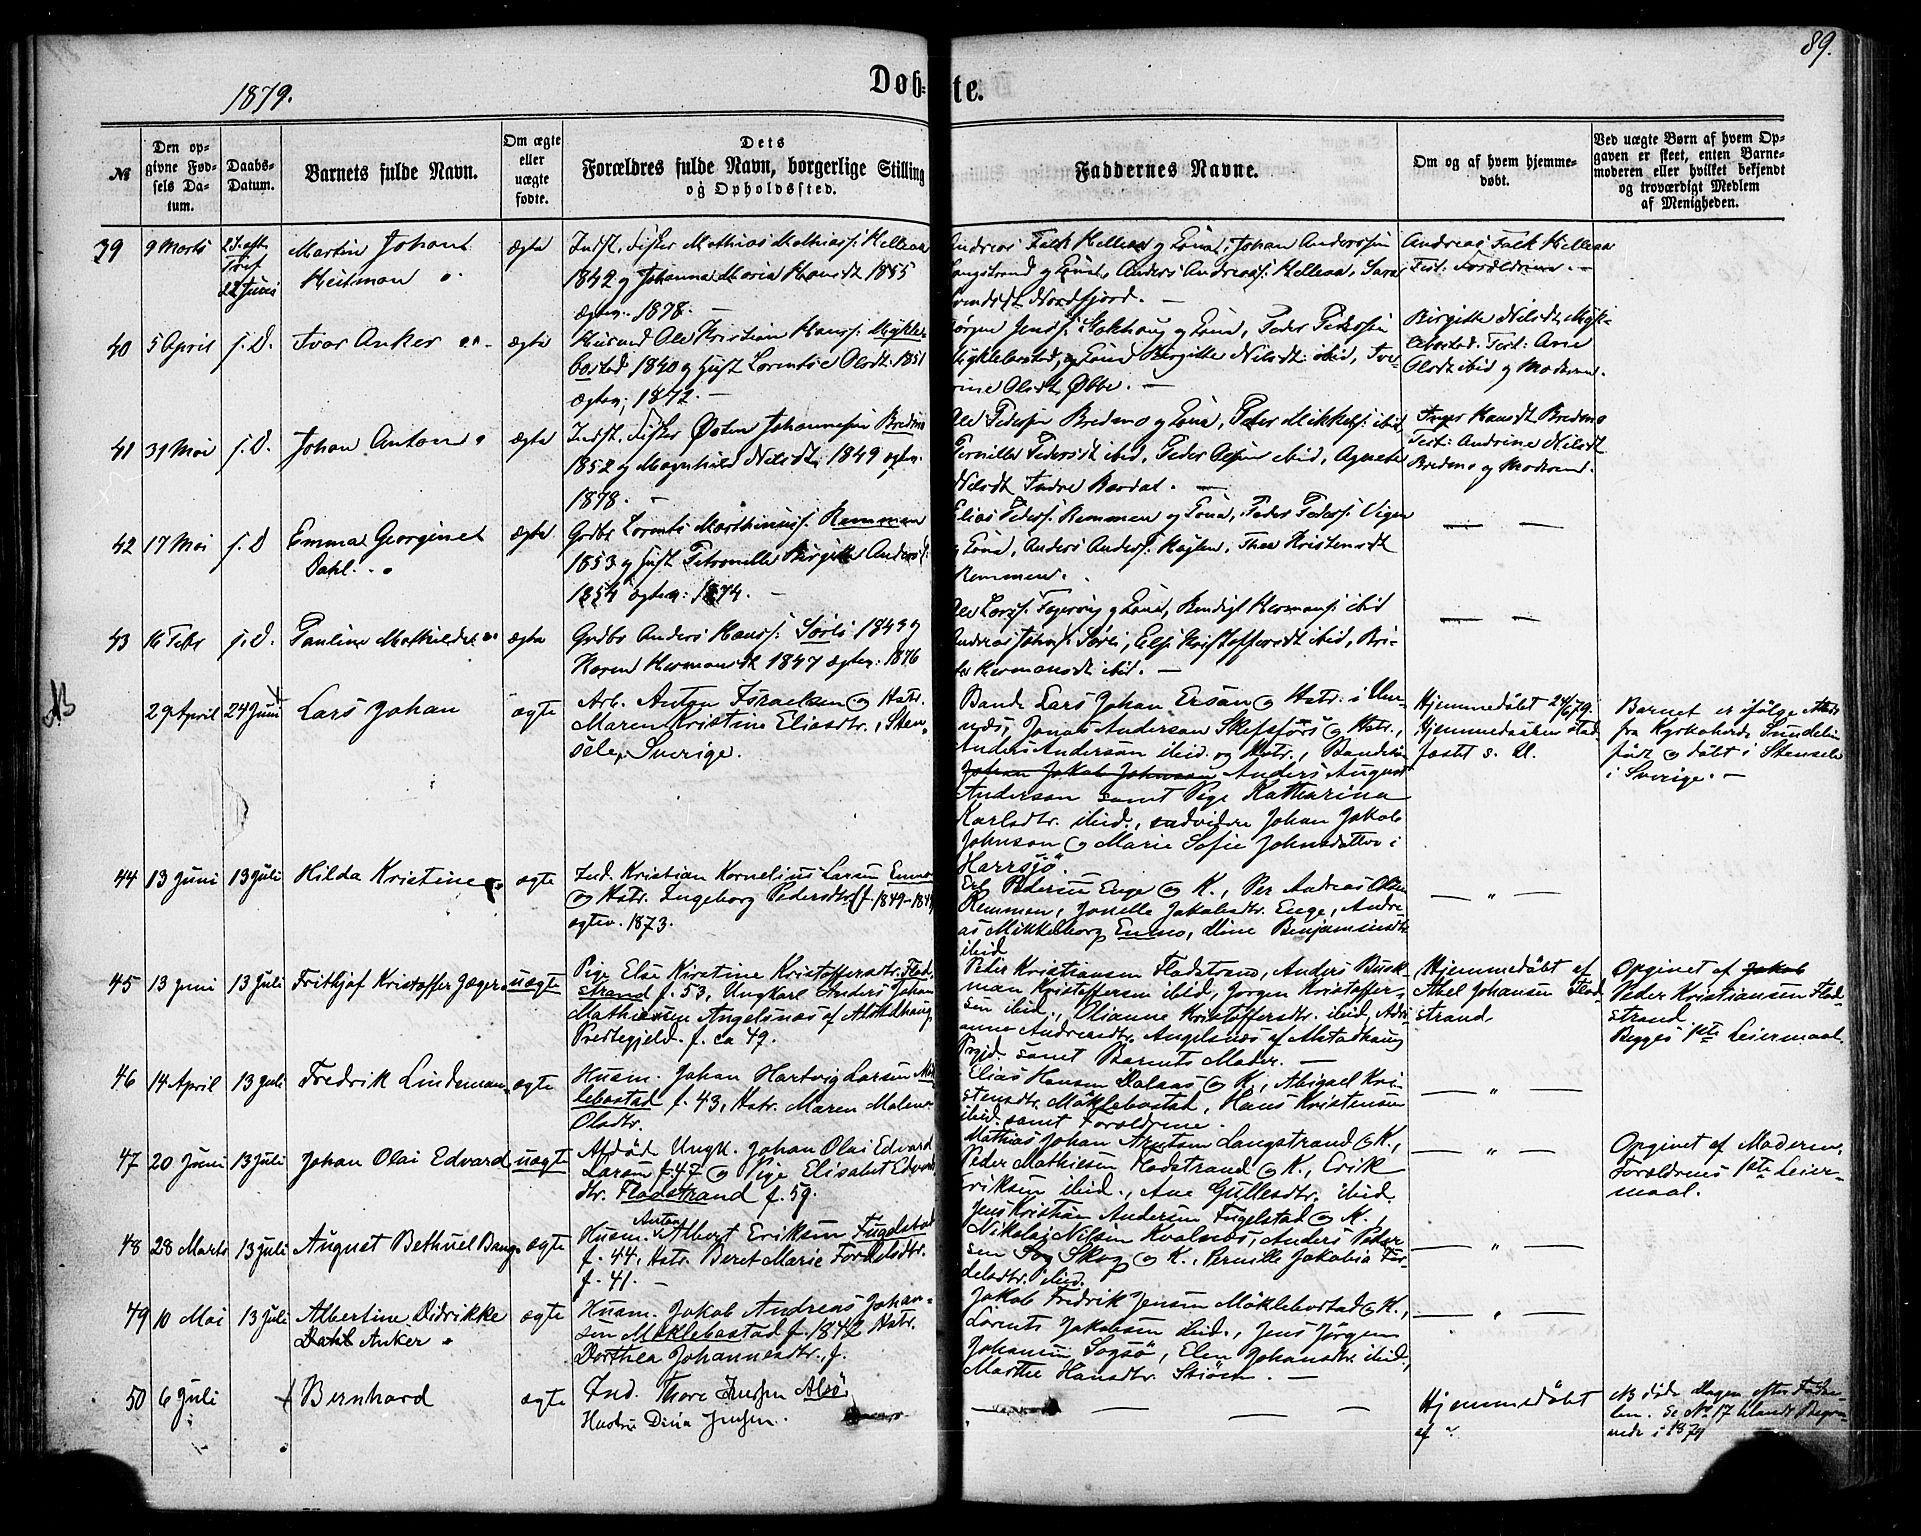 89.
1879.
Døb-te.
№
Den opgivne Fødsels Datum.
Daabs-Datum.
Barnets fulde Navn.
Om ægte eller uægte fødte.
Dets Forældres fulde Navn, borgerlige Stilling og Opholdssted.
Faddernes Navne.
Om og af hvem hjemmedøbt.
Ved uægte Børn af hvem Opgaven er skeet, enten Barnemoderen eller hvilket bekjendt og troværdigt Medlem af Menigheden.
39 9 Marts
22 Juni
Martin Johan
Heitman
ægte
Indst. Fisker Mathias Mathiass: Kelleaa
1842 og Johanna Maria Hansdt 1855
ægtev. 1878. —
Andreas Falk Kelleaa og Kona, Johan Anderssen
Langstrand og Kona, Anders Andreass: Kelleaa, Sara
Svendsdt Nordfjord. —
Andreas Falk Kelleaa
Test: Forældrene. —
40 5 April s. D. Ivar Anker ægte
Husmd Ole Kristian Hanss: Mykle-
bostad 1840 og Hust Lorentse Olsdt: 1851
ægtev. 1872. —
Jørgen Jenss: Stokhaug og Kona, Peder Pederssen
Myklebostad, og Kona Birgitte Nilsdt: ibid, Ive-
rine Olsdt Øbbe. —
Birgitte Nilsdt, Myk-
lebostad. Test: Ane
Olsdt ibid og Moderen.
41 31 Mai s. D. Johan Anton ægte
Indst. Fisker Østen Johannessen Bredmo
1852 og Magnhild Nilsdt: 1849 ægtev.
1878. —
Ole Pederssen Bredmo og Kona, Peter Mikkelss: ibid,
Pernille Pedersdt ibid, Peder Olssen ibid, Agnete
Nilsdt Indre Bardal. —
Inger Hansdt Bredmo
Test: Andrine Nilsdt
Bredmo og Moderen.
42 17 Mai s. D Emma Georginet
Dahl. ægte
Grdbr Lorents Marthinuss: Remmen
1853 og Hust Petronelle Birgitte Andersd:
1854 ægtev: 1874. —
Elias Pederss: Remmen og Kona, Peder Pederss: Vigen
og Kona, Anders Anderss: Høglen, Thea Kristensdt
Remmen.
— —
43 16 Febr s. D. Pauline Mathilde ægte
Grdbr Anders Hanss: Sørli 1842 og
Karen Hermansdt 1847 ægtev: 1876
Ole Larss: Fagervig og Kona, Bendigt Hermanss: ibid
Andreas Johans: Sørli, Else Kristoffersdt ibid, Bri-
te Hermansdt ibid. —
— —
29 April 24 Juni Lars Johan ægte
Arb. Anton Israelsen og Hstr.
Maren Kristine Eliasdtr. i Sten-
sele, Sverige.
Bonde Lars Johan Ersson og Hstr. i Um-
näs, Jonas Anderson Skefsfors og Hstr.,
Anders Anderson ibid. og Hstr., Bonden
Johan Jakob Johnson Anders August
Anderson samt Pige Katharina
Karlsdtr. ibid., endvidere Johan Jakob
Johnson og Marie Sofie Johnsdatter i
Harrsjö.
Hjemmedøbt 24/6 79.
Hjemmedaaben stad-
fæstet s. D.
Barnet er ifølge Attest
fra Kyrkoherde Sundelin
født og døbt i Stensele
i Sverige. —
44 13 Juni 13 Juli Hilda Kristine ægte
Ind. Kristian Kornelius Larsen Enmo
og Hstr. Ingeborg Pedersdtr. f. 1849-1849
ægtev. 1873.
Erik Pedersen Enge og K., Per Andreas Olsen
Remmen, Jonelle Jakobsdtr. Enge, Andre-
as Mikkelborg Enmo, Line Benjaminsdtr.
ibid
— " —
45 13 Juni 13 Juli Frithjof Kristoffer Jæger uægte
Pige Else Kirstine Kristoffersdtr. Flad-
strand f. 53, Ungkarl Anders Johan
Mathiesen Angelsnæs af Alstadhaug
Prestegjeld. f. ca 49.
Peder Kristiansen Fladstrand, Anders Busk-
man Kristoffersen ibid, Jørgen Kristoffer-
sen ibid., Olianne Kristoffersdtr. ibid, Adri-
anne Andreasdtr. Angelsnæs af Alstadhaug
Prgjd. samt Barnets Moder. —
Hjemmedøbt af
Abel Johansen Flad-
strand.
Opgivet af Jakob
Peder Kristiansen Flad-
strand
Begges 1ste Leiermaal.
46 14 April 13 Juli Fredrik Lindeman ægte
Husm. Johan Hartvig Larsen Møk-
lebostad f. 43, Hstr. Maren Malene
Olsdtr.
Elias Hansen Dalaas og K., Abigael Kri-
stensdtr. Møklebostad, Hans Kristensen
ibid samt Forældrene.
— " —
47 20 Juni 13 Juli Johan Olai Edvard uægte
Afdød Ungk. Johan Olai Edvard
Larsen f. 47 og Pige Elisabet Edvards-
dtr. Fladstrand f. 59.
Mathias Johan Arntsen Langstrand og K.,
Peder Mathiesen Fladstrand og K., Erik
Eriksen ibid., Ane Gullesdtr. ibid.
— " —
Opgivet af Moderen,
Forældrenes 1ste Leier-
maal.
48 28 Marts 13 Juli August Bethuel Bang ægte
Husm. Anton Albert Eriksen Fugelstad
f. 44, Hstr. Beret Marie Fordelsdtr.
f. 41. —
Jens Kristian Andersen Fugelstad og K.,
Nikolai Nilsen Kvalnæs, Anders Peder-
sen Sog Skog og K., Pernille Jakobia For-
delsdtr. ibid.
— " —
49 10 Mai 13 Juli Albertine Didrikke
Dahl Anker ægte
Husm. Jakob Andreas Johan-
sen Møklebostad f. 1842 Hstr.
Dorthea Johannesdtr., f.
Jakob Fredrik Jensen Møklebostad og K.,
Lorents Jakobsen ibid., Jens Jørgen
Johansen Sogsø, Elen Johansdtr. ibid.,
Marthe Hansdtr. Stiöen. —
— " —
50 6 Juli Bernhard ægte
Ind. Thore Jensen Alsø
Hustru Dina Jensen.
— — — —
Hjemmedøbt
af
NB døde Dagen efter Fødse-
len. Se No 17 blandt Begra-
vede i 1879